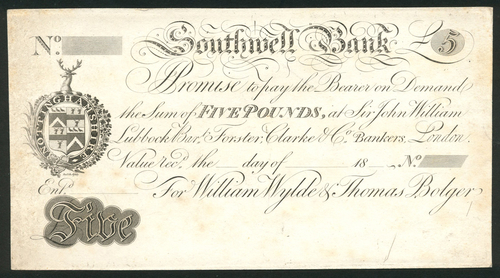 No. Southwell Bank £5
I Promise to pay the Bearer on Demand
NOTTINGHAMSHIRE
the Sum of FIVE POUNDS, at Sir John William
Lubbock Bart. Forster, Clarke & Co. Bankers, London.
Value recd. the day of 18 No.
Entd. For William Wylde & Thomas Bolger
Five